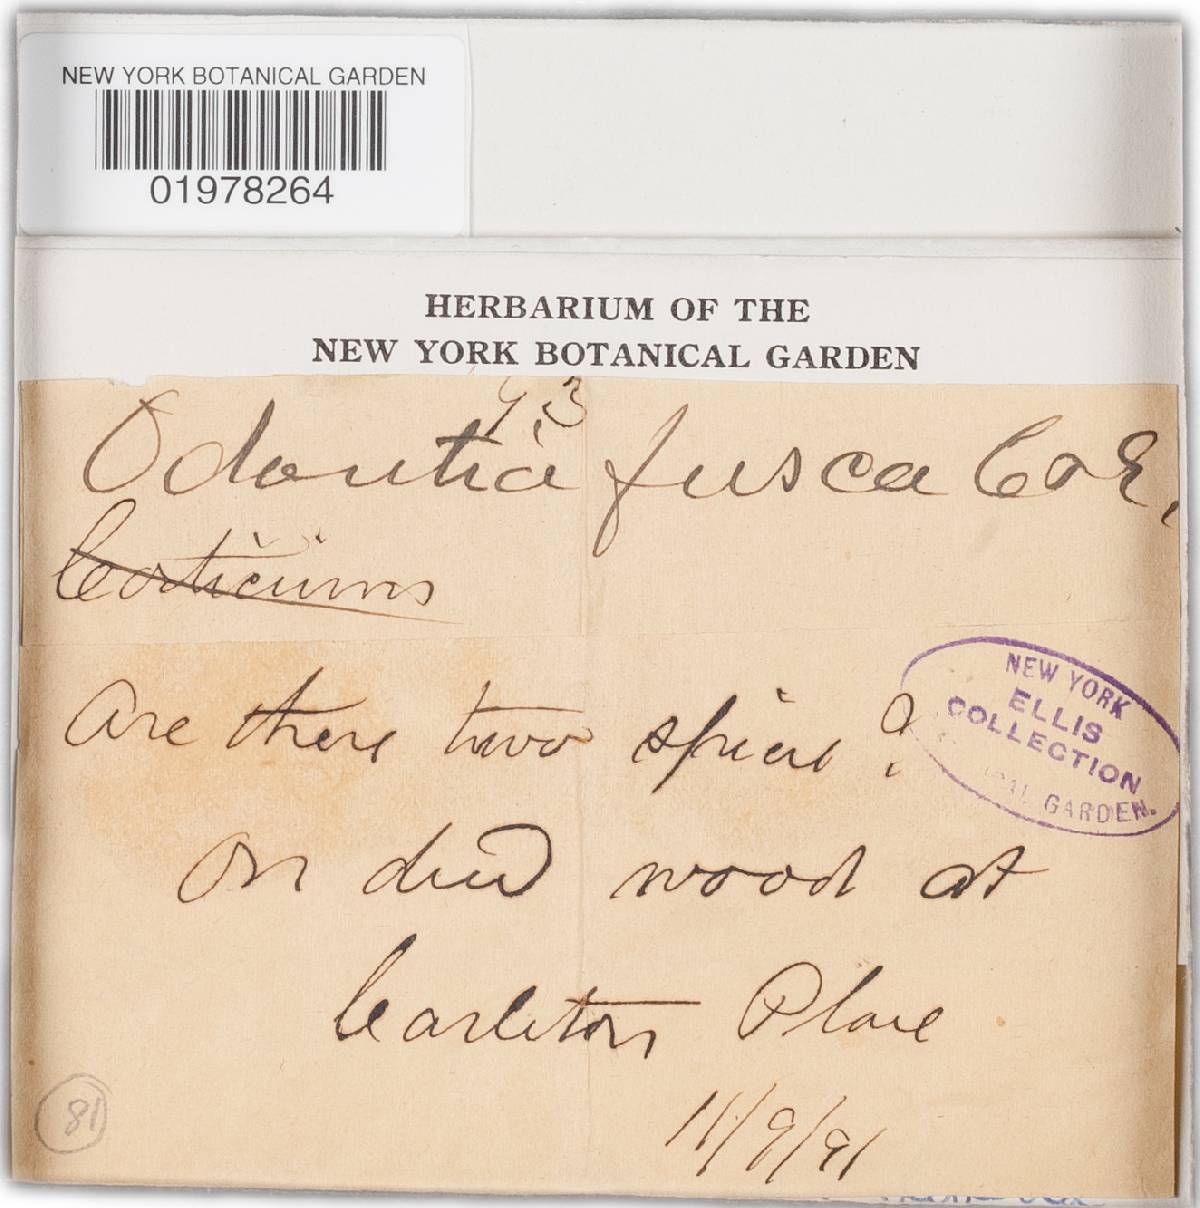 NEW YORK BOTANICAL GARDEN
01978264
HERBARIUM OF THE
NEW YORK BOTANICAL GARDEN
93
Odontia fusca C & E.
Corticium
Are there two species?
NEW YORK
ELLIS
COLLECTION
GARDEN.
on dead wood at
Carleton Place
11/9/91
81